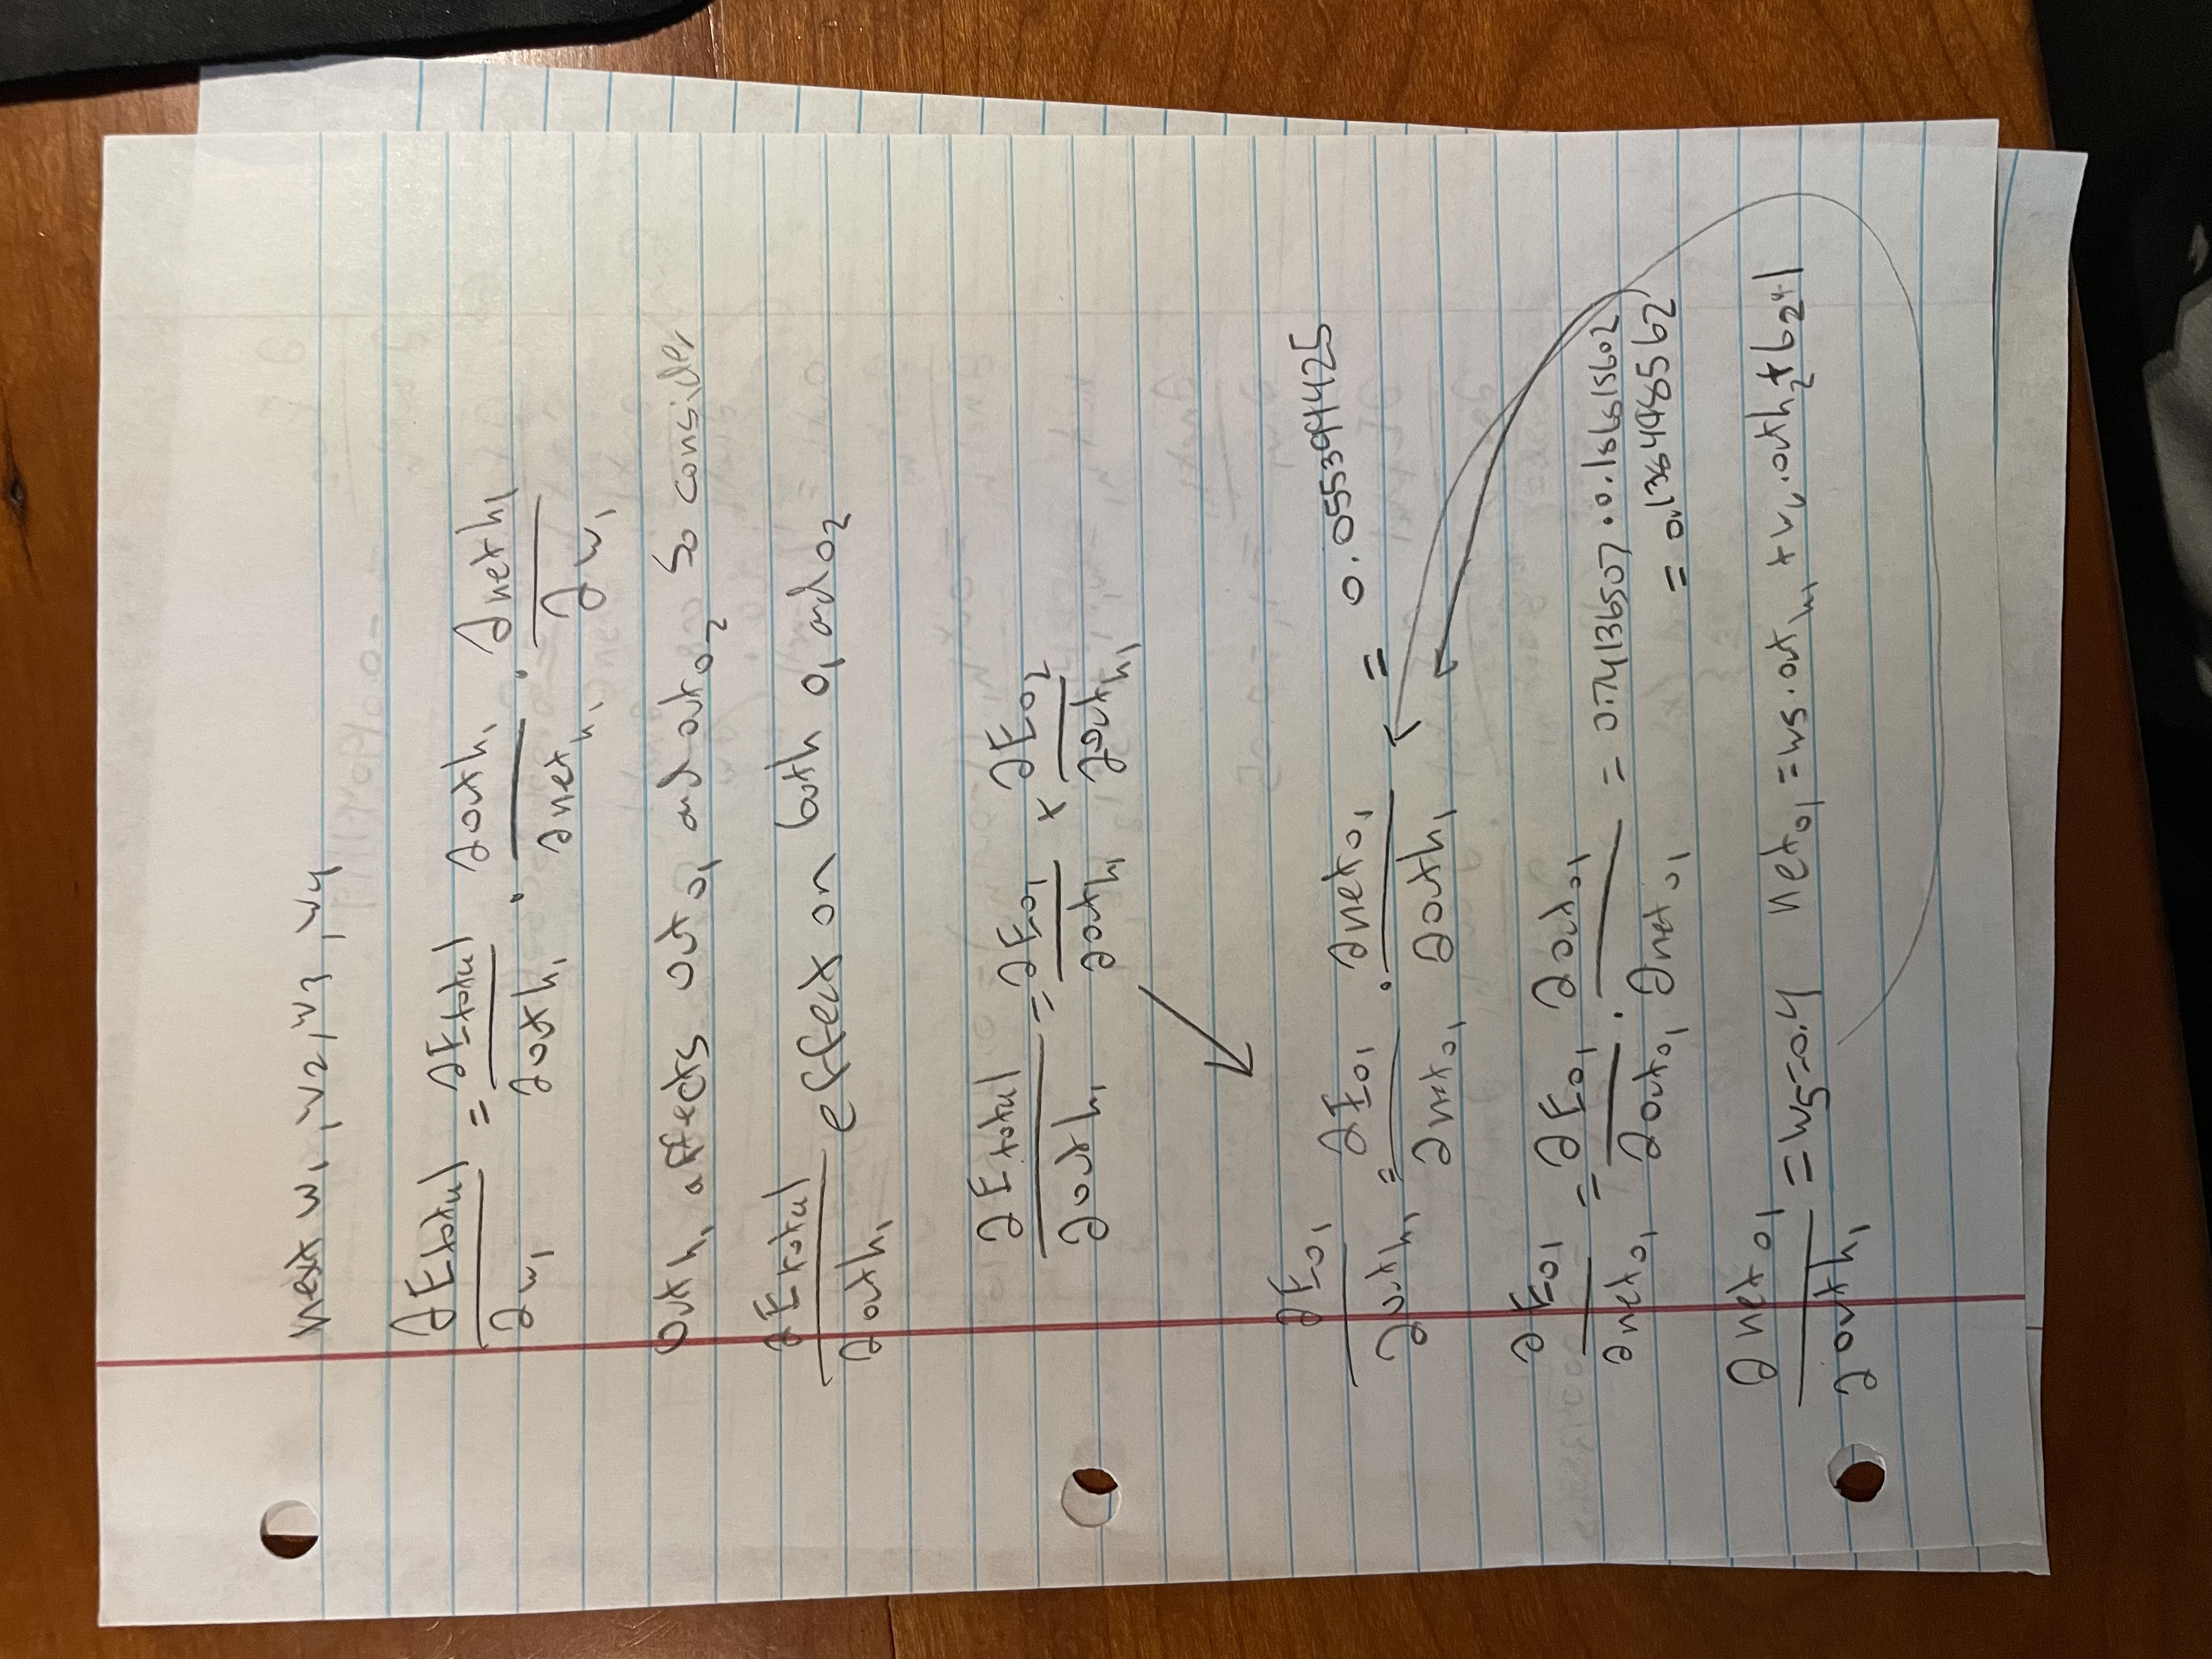 next w₁, w₂, w₃, w₄
∂E total / ∂w₁ = ∂E total / ∂out h₁ · ∂out h₁ / ∂net h₁ · ∂net h₁ / ∂w₁
Out h₁ affects out o₁ and out o₂ so consider
∂E total / ∂out h₁ effect on both o₁ and o₂
∂E total / ∂out h₁ = ∂E o₁ / ∂out h₁ + ∂E o₂ / ∂out h₁
∂E o₁ / ∂out h₁ = ∂E o₁ / ∂net o₁ · ∂net o₁ / ∂out h₁ = 0.055399425
∂E o₁ / ∂net o₁ = ∂E o₁ / ∂out o₁ · ∂out o₁ / ∂net o₁ = 0.74136507 · 0.186815602
= 0.138498562
∂net o₁ / ∂out h₁ = w5 = 0.4 net o₁ = w5 · out h₁ + w₆ · out h₂ + b₂ * 1